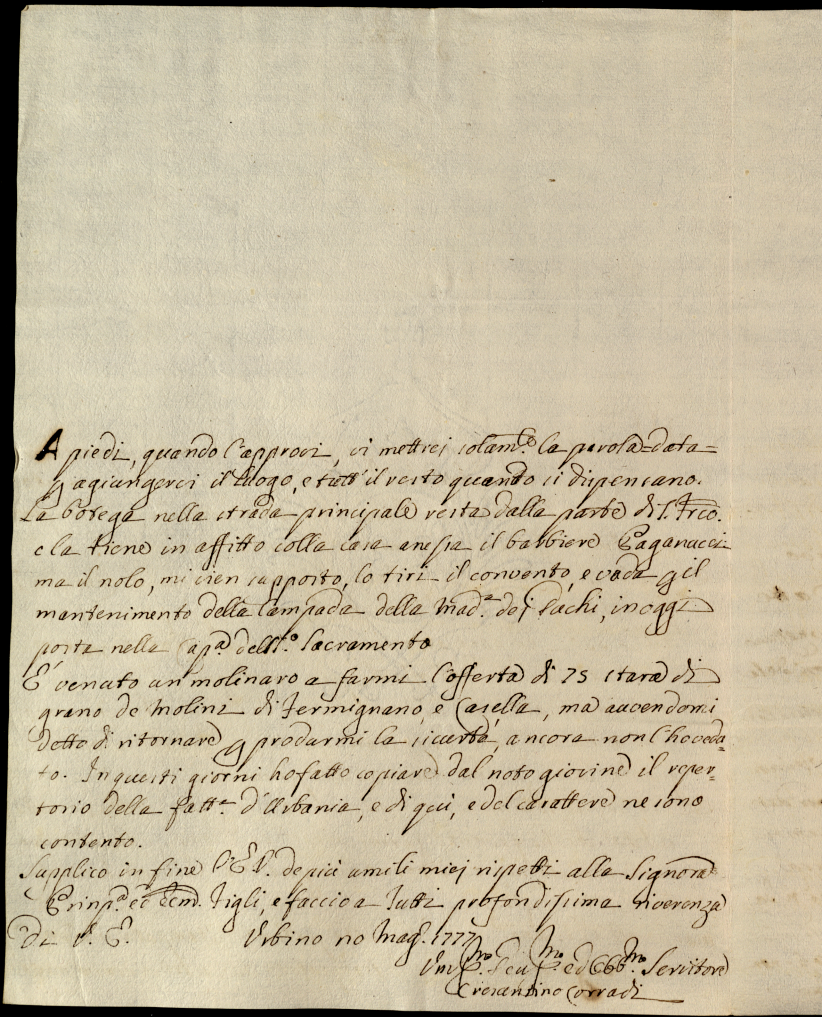 A piedi, quando l'approvi, vi mettrei solam.te la parola=data=
p agiungerci il luogo, e tutt'il resto quando si dispensano.
La botega nella strada principale resta dalla parte di S. Frco.
e la tiene in affitto colla casa anessa il barbiere Paganucci
ma il nolo, mi vien supposto, lo tiri il convento, e vada p il
mantenimento della lampada della Mad.a dei Pachi, in oggi
posta nella Cap.a dell S.o Sacramento
E' venuto un molinaro a farmi l'offerta di 75 stara di
grano de Molini di Fermignano, e Casella, ma avvendomi
detto di ritornare p prodarmi la sicurtà, ancora non l'ho vedu-
to. In questi giorni ho fatto copiare dal noto giovine il reper=
torio della fatt.a d'Urbania, e di qui, e del carattere ne sono
contento.
Supplico in fine l'E V. de più umili miei rispetti alla Signora
Prinp.a ed Ecm. Figli, e faccio a Tutti profondissima riverenza
Di V. E. Urbino no Mag. 1777
Um.mo Dev.mo ed Obb.mo Servitore
Crescentino Corradi